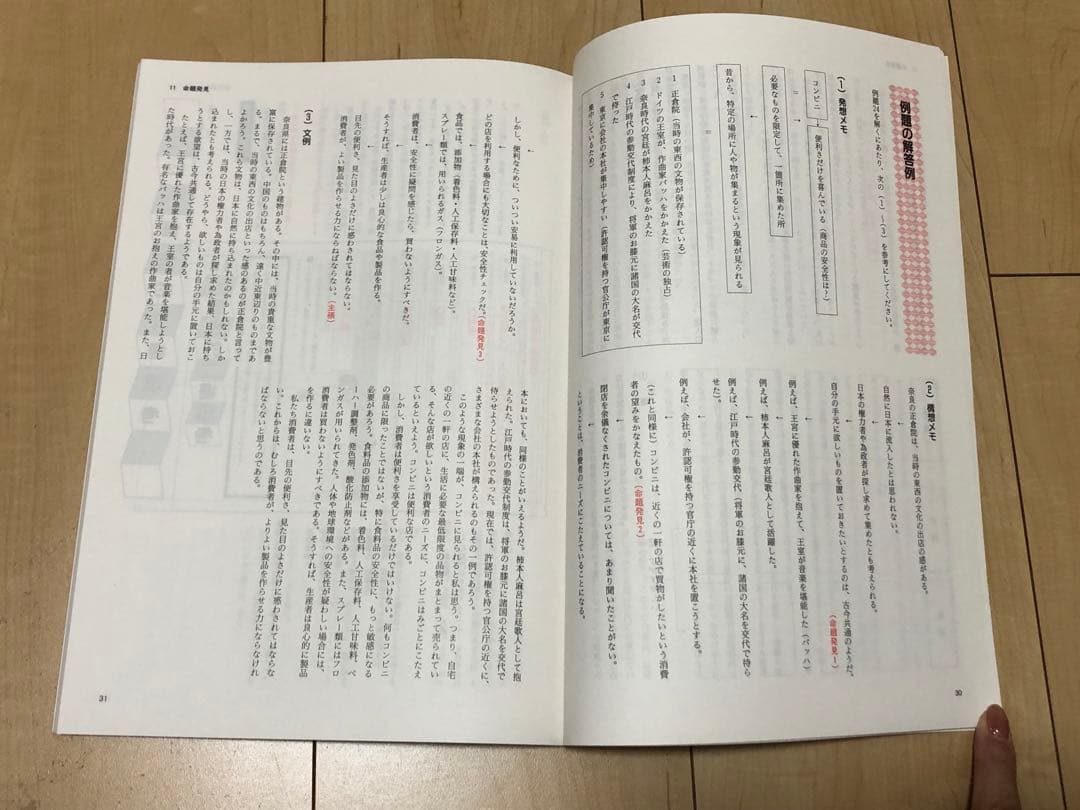 例題の解答例
例題24を解くにあたり、次の(1)〜(3)を参考にしてください。
(1) 発想メモ
コンビニ
便利さだけを喜んでいる(商品の安全性は?)
＝
必要なものを限定して、一箇所に集めた所
昔から、特定の場所に人や物が集まるという現象が見られる
＝
1 正倉院(当時の東西の文物が保存されている)
2 ドイツの王室が、作曲家バッハをかかえた(芸術の独占)
3 奈良時代の宮廷が柿本人麻呂をかかえた
4 江戸時代の参勤交代制度により、将軍のお膝元に諸国の大名が交代
で待った
5 東京に会社の本社が集中しやすい(許認可権を持つ官公庁が東京に
集中しているため)
(2) 構想メモ
奈良の正倉院は、当時の東西の文化の出店の感がある。
自然に日本に流入したとは思われない。
日本の権力者や為政者が探し求めて集めたとも考えられる。
自分の手元に欲しいものを置いておきたいとするのは、古今共通のようだ。
(命題発見1)
例えば、王宮に優れた作曲家を抱えて、王室が音楽を堪能した(バッハ)
例えば、柿本人麻呂が宮廷歌人として活躍した。
例えば、江戸時代の参勤交代(将軍のお膝元に、諸国の大名を交代で待ら
せた)。
例えば、会社が、許認可権を持つ官庁の近くに本社を置こうとする。
(これと同様に)コンビニは、近くの一軒の店で買物がしたいという消費
者の望みをかなえたもの。(命題発見2)
閉店を余儀なくされたコンビニについては、あまり聞いたことがない。
ということは、消費者のニーズにこたえていることになる。
30
11 命題発見
しかし、便利なために、ついつい安易に利用していないだろうか。
どの店を利用する場合にも大切なことは、安全性チェックだ。(命題発見3)
食品では、添加物(着色料・人工保存料・人工甘味料など)。
スプレー類では、用いられるガス(フロンガス)。
消費者は、安全性に疑問を感じたら、買わないようにすべきだ。
そうすれば、生産者は少しは良心的な食品や製品を作る。
目先の便利さ、見た目のよさだけに惑わされてはならない。
消費者が、よい製品を作らせる力にならねばならない。(主張)
(3) 文例
奈良県には正倉院という建物がある。その中には、当時の貴重な文物が豊
富に保存されている。中国のものはもちろん、遠く中近東辺りのものまであ
る。まるで、当時の東西の文化の出店といった感のあるのが正倉院と言って
よかろう。これら文物は、日本に自然に持ち込まれたのかもしれない。しか
し、一方では、当時の日本の権力者や為政者が探し求めた結果、日本に持ち
込まれたとも考えられる。どうやら、欲しいものは自分の手元に置いておこ
うとする欲望は、古今共通して存在するようである。
たとえば、王宮に優れた作曲家を抱え、王室の者が音楽を堪能しようとし
た時代があった。有名なバッハは王宮のお抱えの作曲家であった。また、日
本においても、同様のことがいえるようだ。柿本人麻呂は宮廷歌人として抱
えられた。江戸時代の参勤交代制度は、将軍のお膝元に諸国の大名を交代で
侍らせようとしたものであった。現在では、許認可権を持つ官公庁の近くに、
さまざまな会社の本社が構えられるのもその一例であろう。
このような現象の一端が、コンビニに見られると私は思う。つまり、自宅
の近くの一軒の店に、生活に必要な最低限度の品物がまとまって売られてい
る、そんな店が欲しいという消費者のニーズに、コンビニはみごとにこたえ
ているといえよう。コンビニは便利な店である。
しかし、消費者は便利さを享受しているだけではいけない。何もコンビニ
の商品に限ったことではないが、特に食料品の安全性に、もっと敏感になる
必要があろう。食料品の添加物には、着色料、人工保存料、人工甘味料、ペ
ーハー調整剤、発色剤、酸化防止剤などがある。また、スプレー類にはフロ
ンガスが用いられてきた。人体や地球環境への安全性が疑わしい場合には、
消費者は買わないようにすべきである。そうすれば、生産者は良心的に製品
を作るに違いない。
私たち消費者は、目先の便利さ、見た目のよさだけに惑わされてはならな
い。これからは、むしろ消費者が、よりよい製品を作らせる力にならなけれ
ばならないと思うのである。
31